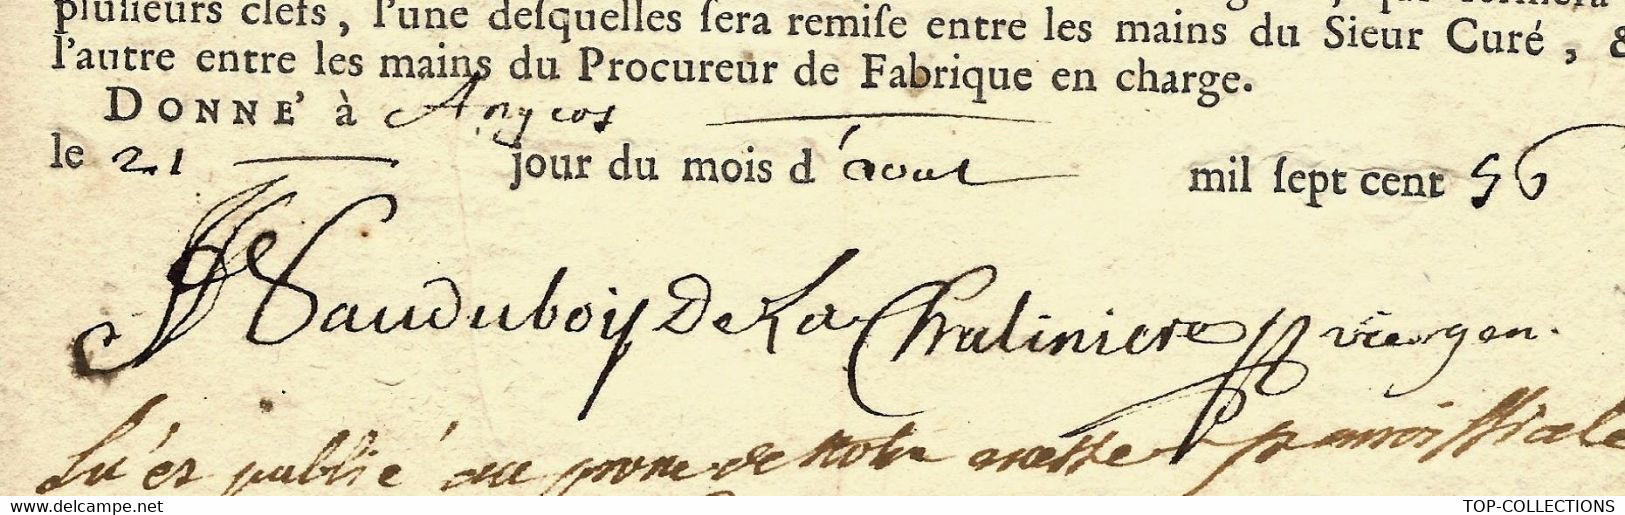 plusieurs clefs, l'une desquelles sera remise entre les mains du Sieur Curé, &
l'autre entre les mains du Procureur de Fabrique en charge.
DONNE' à Angers
le 21 jour du mois d'aout mil sept cent 56
Vauduboiſ De La Chaliniere vic. gen.
Lu et publié au prone de notre messe paroissiale
www.delcampe.net
TOP-COLLECTIONS